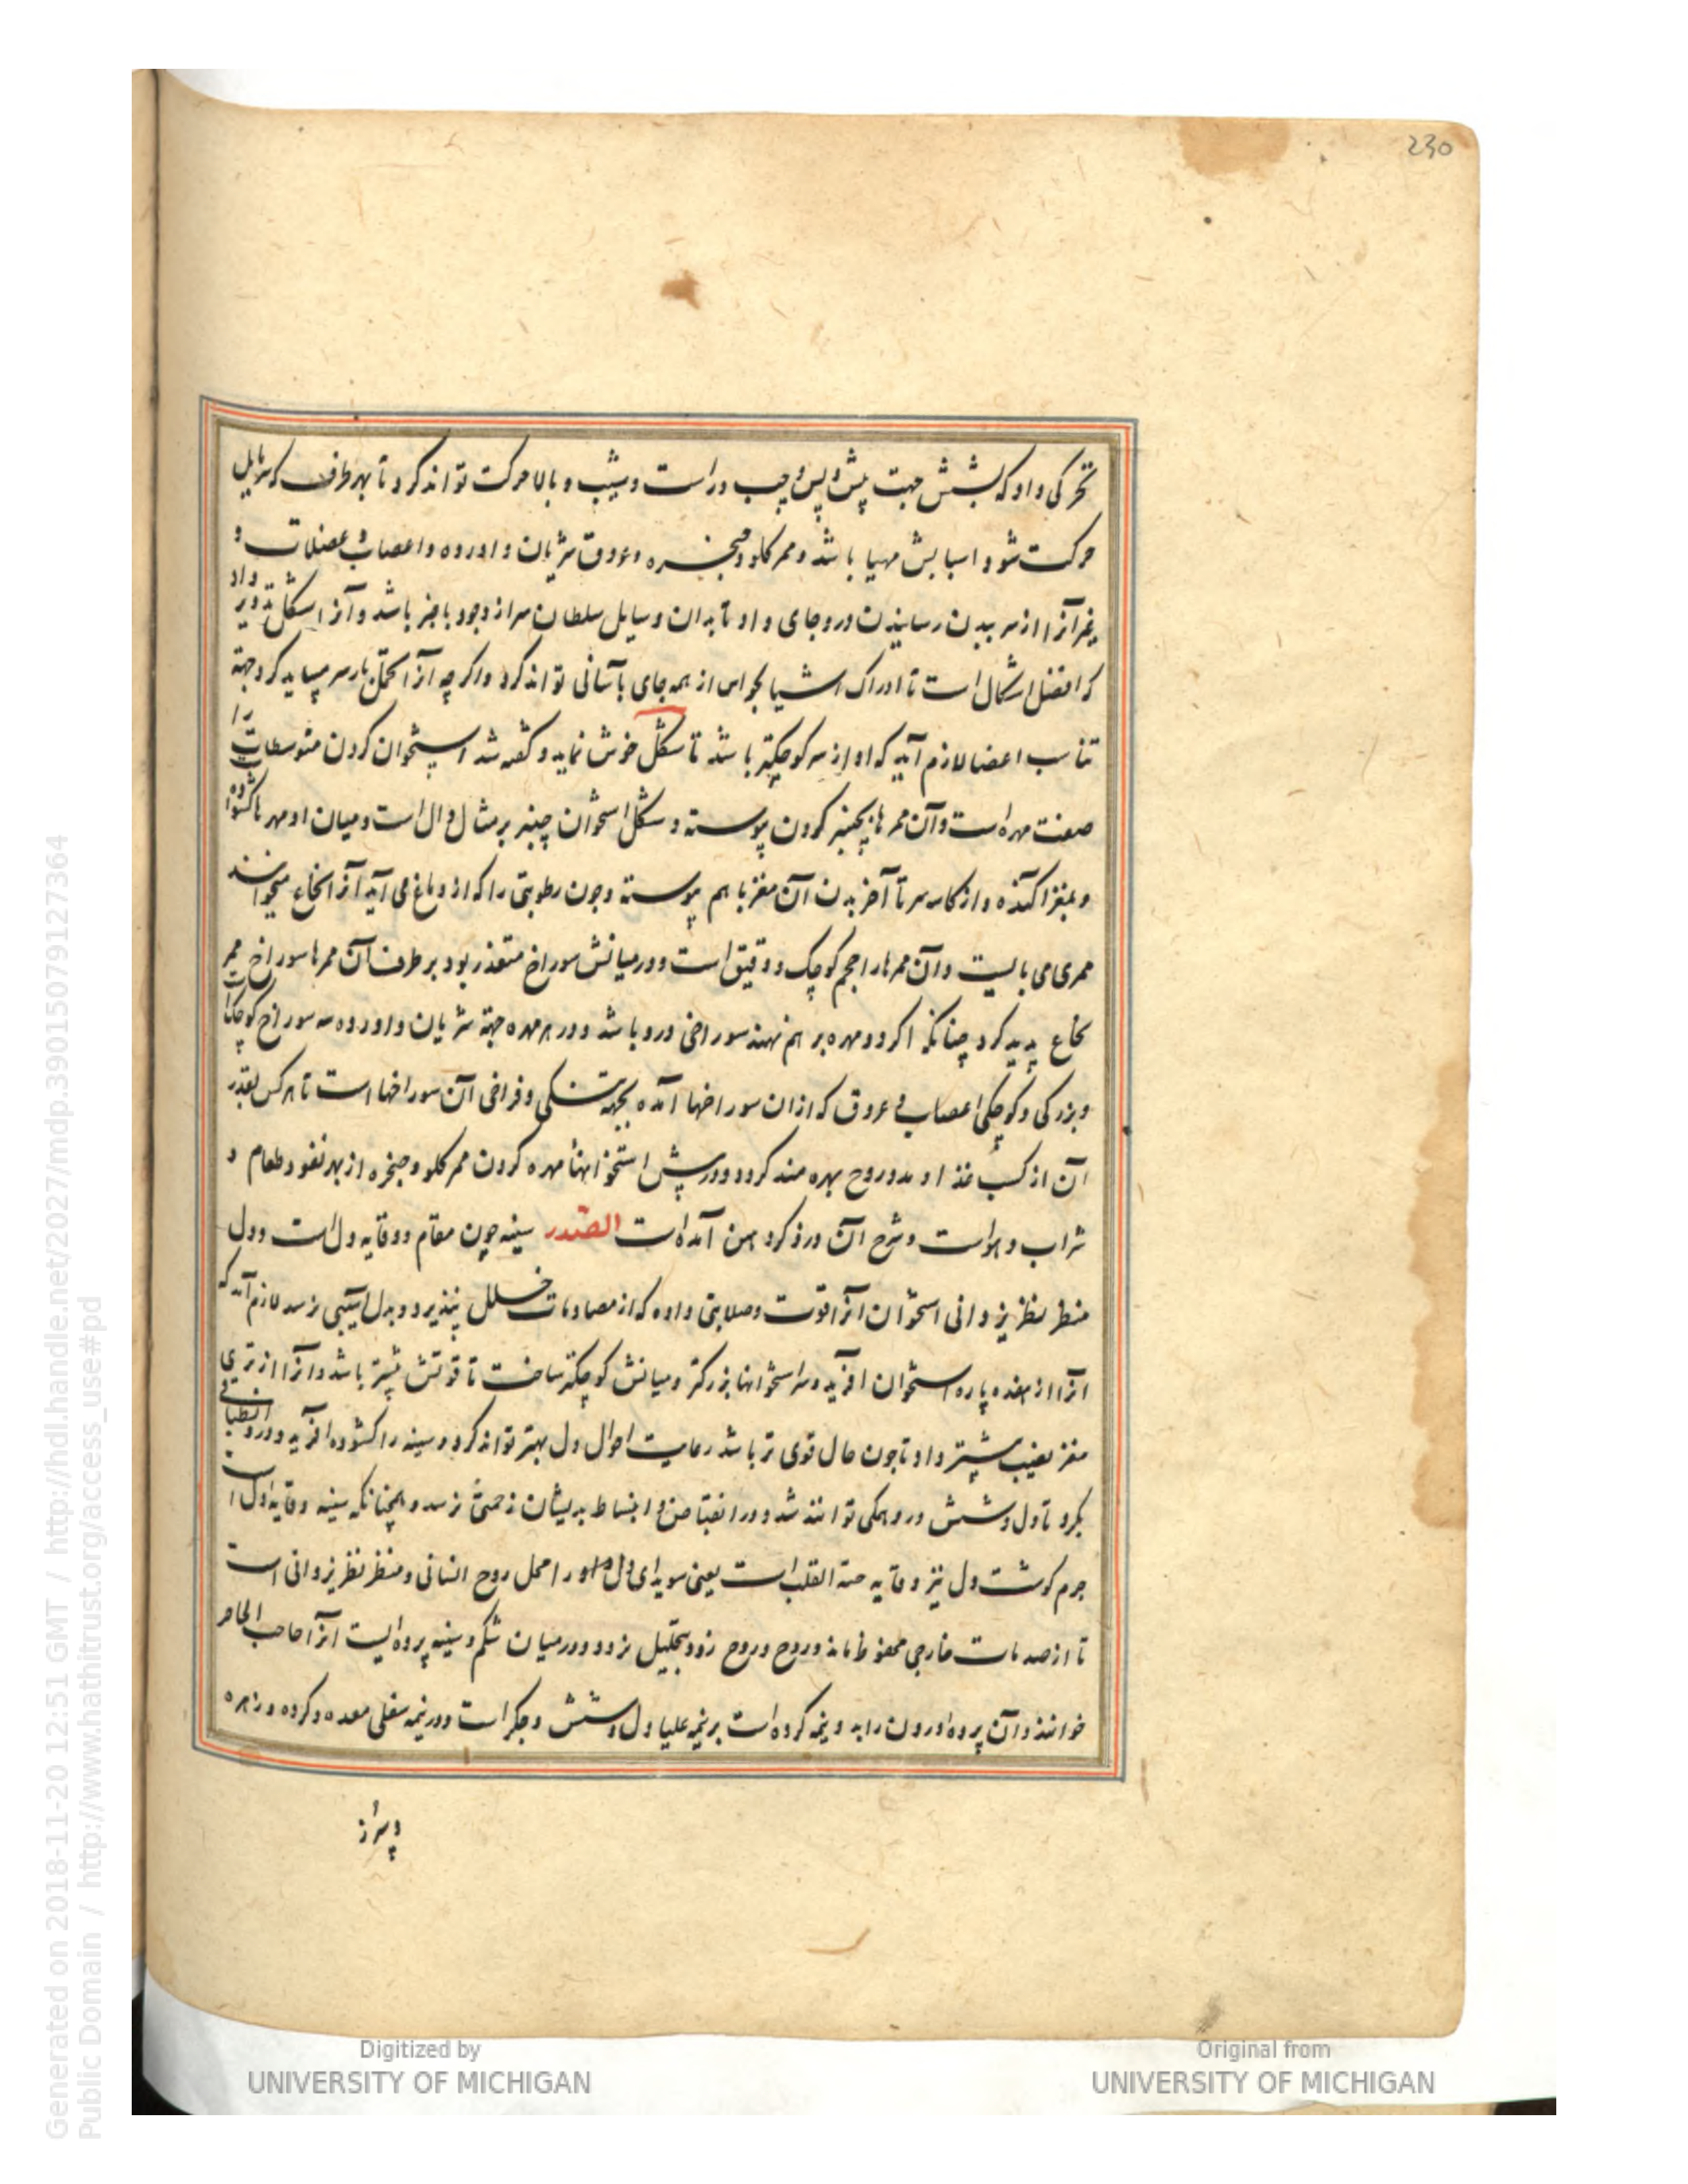 230
تحرکی داد که بشش جهت پیش و پس و چپ و راست و شیب و بالا حرکت تواند کرد تا بهر طرف که مایل
حرکت شود اسبابش مهیا باشد و ممر کلو و حنجره و عروق شریان و اورده و اعصاب و عضلات و
غیر آنرا از سر ببدن رسانیدن درو جای داد تا بدان وسایل سلطان سر از وجود باخبر باشد و آنرا شکل تدویر داد
که افضل اشکال است تا ادراک اشیا بحواس از همه جای بآسانی تواند کرد واکر چه آنرا تحمل بار سر میباید کرد جهة
تناسب اعضا لازم آید که او از سر کوچکتر باشد تا شکل خوش نماید و کفته شد استخوان کردن متوسطات را
صفت مهره است و آن ممرها بچنبر کردن پیوسته و شکل استخوان چنبر بر مثال دال است و میان او مهرها کشوده
و بمغز آکنده و از کاسه سر تا آخر بدن آن مغز با هم پیوسته و چون رطوبتی را که از دماغ می آید آنرا نخاع میخوانند
ممری می بایست و آن ممرها را حجم کوچک و دقیق است و در میانش سوراخ متعذر بود بر طرف آن ممرها سوراخ ممر
نخاع پدید کرد چنانکه اکر دو مهره بر هم نهند سوراخی درو باشد و در هر مهره جهة شریان و اورده سه سوراخ کوچک است
و بزرکی و کوچکی اعصاب و عروق که ازان سوراخها آمده بجهة تنکی و فراخی آن سوراخها است تا هر کس بقدر
آن از کسب غذا و مدد روح بهره مند کردد و در پیش استخوانهاء مهره کردن ممر کلو و حنجره از بهر نفوذ طعام و
شراب و هواست و شرح آن در ذکر دهن آمده است الصدر سینه چون مقام و وقایه دل است و دل
منظر نظر یزدانی استخوان آنرا قوت و صلابتی داده که از مصادمات خلل نپذیرد و بدل آسیبی نرسد لازم آمد که
آنرا از هفده پاره استخوان آفرید و سر استخوانها بزرکتر و میانش کوچکتر ساخت تا قوتش بیشتر باشد و آنرا از تری
مغز نصیب بیشتر داد تا چون حال قوی تر باشد رعایت احوال دل بهتر تواند کرد و سینه را کشوده آفرید و درو انطباقی
بکرد تا دل و شش درو همکی توانند شد و در انقباض و انبساط بدیشان زحمتی نرسد و همچنانکه سینه وقایه دل است
جرم کوشت دل نیز وقایه حبة القلب است یعنی سویدای دل و او را محل روح انسانی و منظر نظر یزدانی است
تا از صدمات خارجی محفوظ ماند و روح در روح زود بتحلیل نرود و در میان شکم و سینه پرده ایست آنرا حجاب الحاجز
خوانند و آن پرده اندرون را بدو نیمه کرده است بر نیمه علیا دل و شش و جکر است و در نیمه سفلی معده و کرده و زهره
و سپرز
Generated on 2018-11-20 12:51 GMT / http://hdl.handle.net/2027/mdp.39015079127364
Public Domain / http://www.hathitrust.org/access_use#pd
Digitized by
UNIVERSITY OF MICHIGAN
Original from
UNIVERSITY OF MICHIGAN